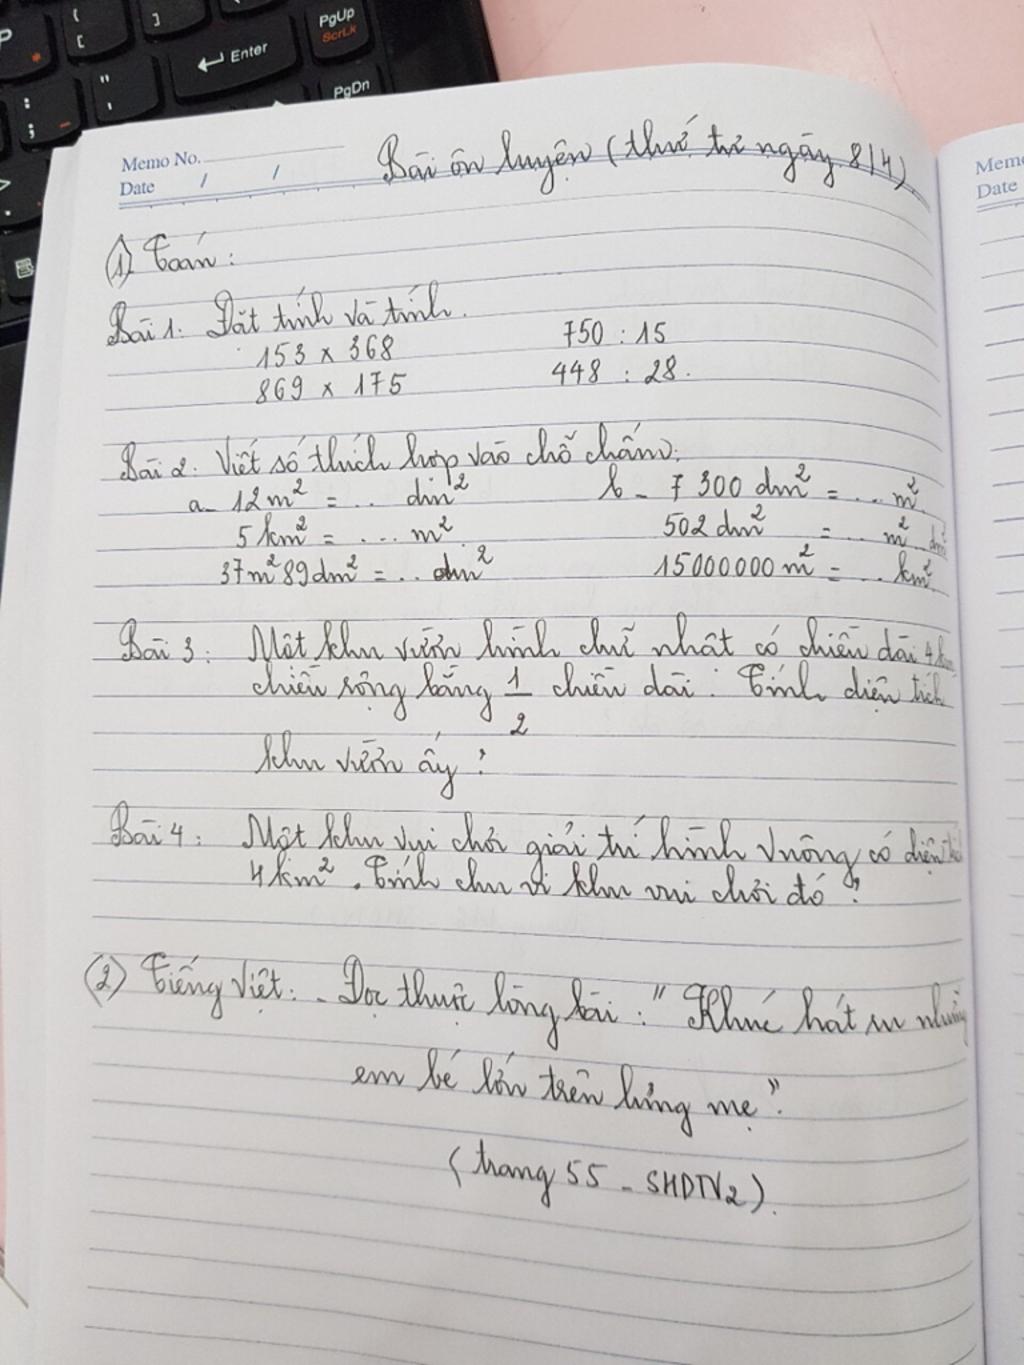 PgUp
ScrLk
Enter
PgDn
Memo No.
Date / /
Bài ôn luyện (thứ tư ngày 8/4)
Memo
Date
① Toán:
Bài 1: Đặt tính và tính.
153 x 368 750 : 15
869 x 175 448 : 28.
Bài 2: Viết số thích hợp vào chỗ chấm:
a- 12m² = .. dm² b- 7 300 dm² = ... m².
5 km² = ... m². 502 dm² = ... m² dm²
37m² 89dm² = .. dm² 15000000 m² = .. km².
Bài 3: Một khu vườn hình chữ nhật có chiều dài 4km,
chiều rộng bằng 1/2 chiều dài. Tính diện tích
khu vườn ấy?
Bài 4: Một khu vui chơi giải trí hình vuông có diện tích
4km². Tính chu vi khu vui chơi đó?
② Tiếng Việt: - Đọc thuộc lòng bài: "Khúc hát ru những
em bé lớn trên lưng mẹ".
(trang 55 - SHDTV2).